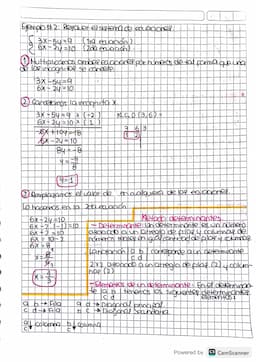 Ejemplo # 2. Resolver el sistema de ecuaciones
3x - 5y = 9 (1ra ecuación)
6x - 2y = 10 (2da ecuación)
① Multiplicamos ambas ecuaciones por números de tal forma que una de las incógnitas se cancele.
3x - 5y = 9
6x - 2y = 10
② Cancelamos la incógnita x
3x - 5y = 9 × (-2) M.C.D (3,6) =
6x - 2y = 10 × (1)
-6x + 10y = -18
6x - 2y = 10
8y = -8
y = -8/8
y = -1
③ Remplazamos el valor de en alguna de las ecuaciones
Lo hacemos en la 2da ecuación
6x - 2y = 10
6x - 2 (-1) = 10
6x + 2 = 10
6x = 10 - 2
6x = 8
x = 8/6
x = 4/3
Método determinantes
- Determinante: Un determinante es un número asociado a un arreglo de filas y columnas de números reales en igual cantidad de filas y columnas.
La notación a b corresponde a un determinante
c d
2x2 asociado a un arreglo de filas (2) y columnas (2)
- Elementos de un determinante: En el determinante a b tenemos los siguientes determinantes
c d elementos:
a b → Fila a d → Diagonal principal
c d → Fila b c → Diagonal secundaria
a c ↓ columna b d ↓ columna
Powered by CS CamScanner